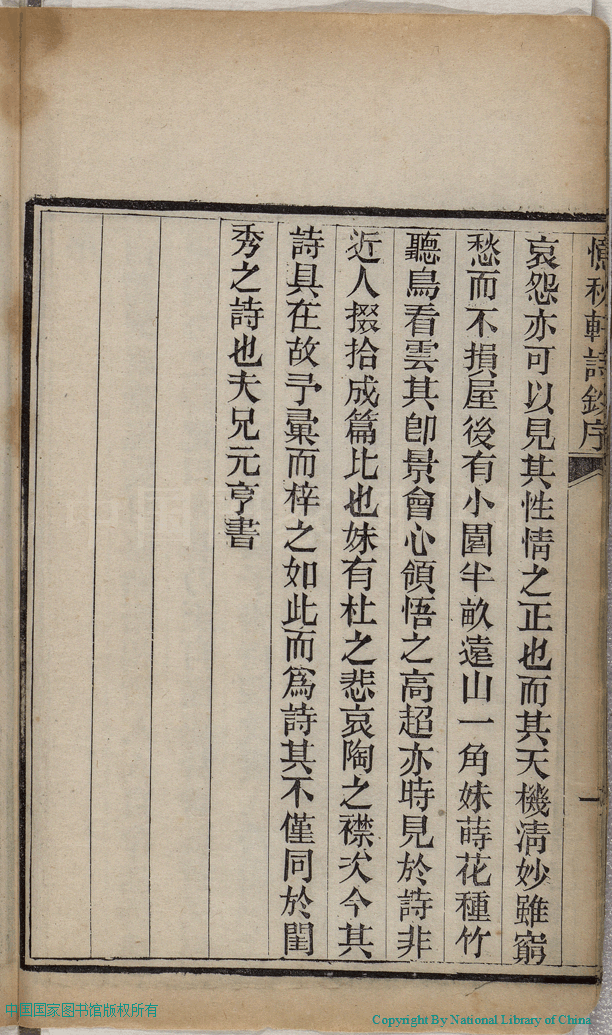 憶秋軒詩鈔序
一
哀怨亦可以見其性情之正也而其天機淸妙雖窮
愁而不損屋後有小園半畝遠山一角妹蒔花種竹
聽鳥看雲其卽景會心領悟之高超亦時見於詩非
近人掇拾成篇比也妹有杜之悲哀陶之襟次今其
詩具在故予彙而梓之如此而爲詩其不僅同於閨
秀之詩也夫兄元亨書
中国国家图书馆版权所有
Copyright By National Library of China